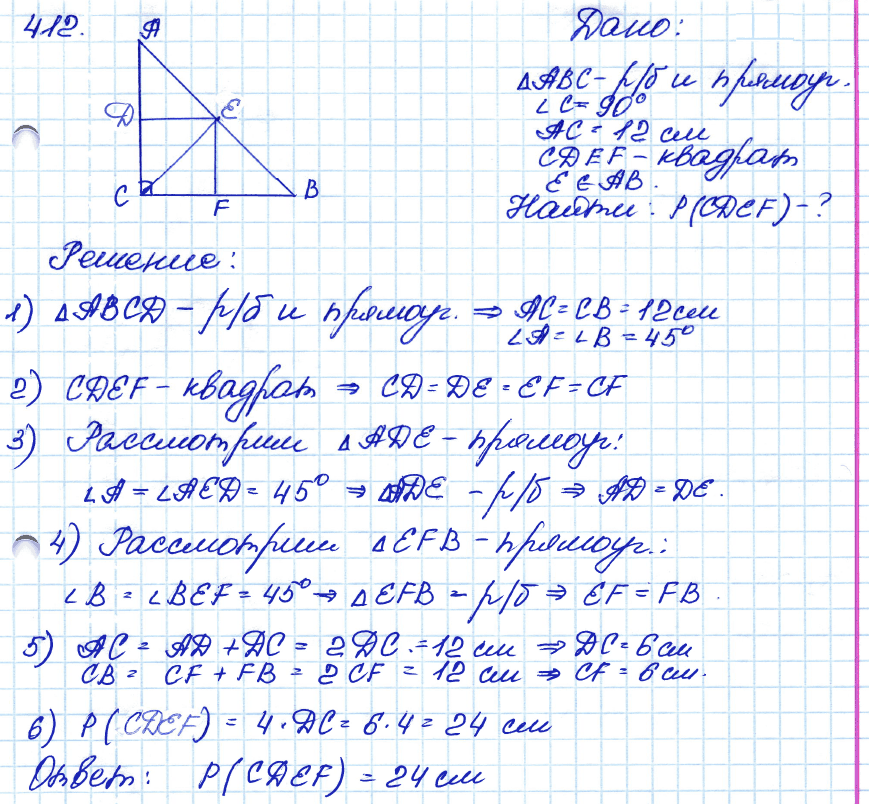 412.
A
D
E
C
F
B
Дано:
△ABC - р/б и прямоуг.
∠C = 90°
AC = 12 см
CDEF - квадрат
E ∈ AB.
Найти: P(CDEF) - ?
Решение:
1) △ABCD - р/б и прямоуг. ⇒ AC = CB = 12 см
∠A = ∠B = 45°
2) CDEF - квадрат ⇒ CD = DE = EF = CF
3) Рассмотрим △ADE - прямоуг:
∠A = ∠AED = 45° ⇒ △ADE - р/б ⇒ AD = DE.
4) Рассмотрим △EFB - прямоуг.:
∠B = ∠BEF = 45° ⇒ △EFB - р/б ⇒ EF = FB.
5) AC = AD + DC = 2DC = 12 см ⇒ DC = 6 см
CB = CF + FB = 2CF = 12 см ⇒ CF = 6 см.
6) P(CDEF) = 4·DC = 6·4 = 24 см
Ответ: P(CDEF) = 24 см